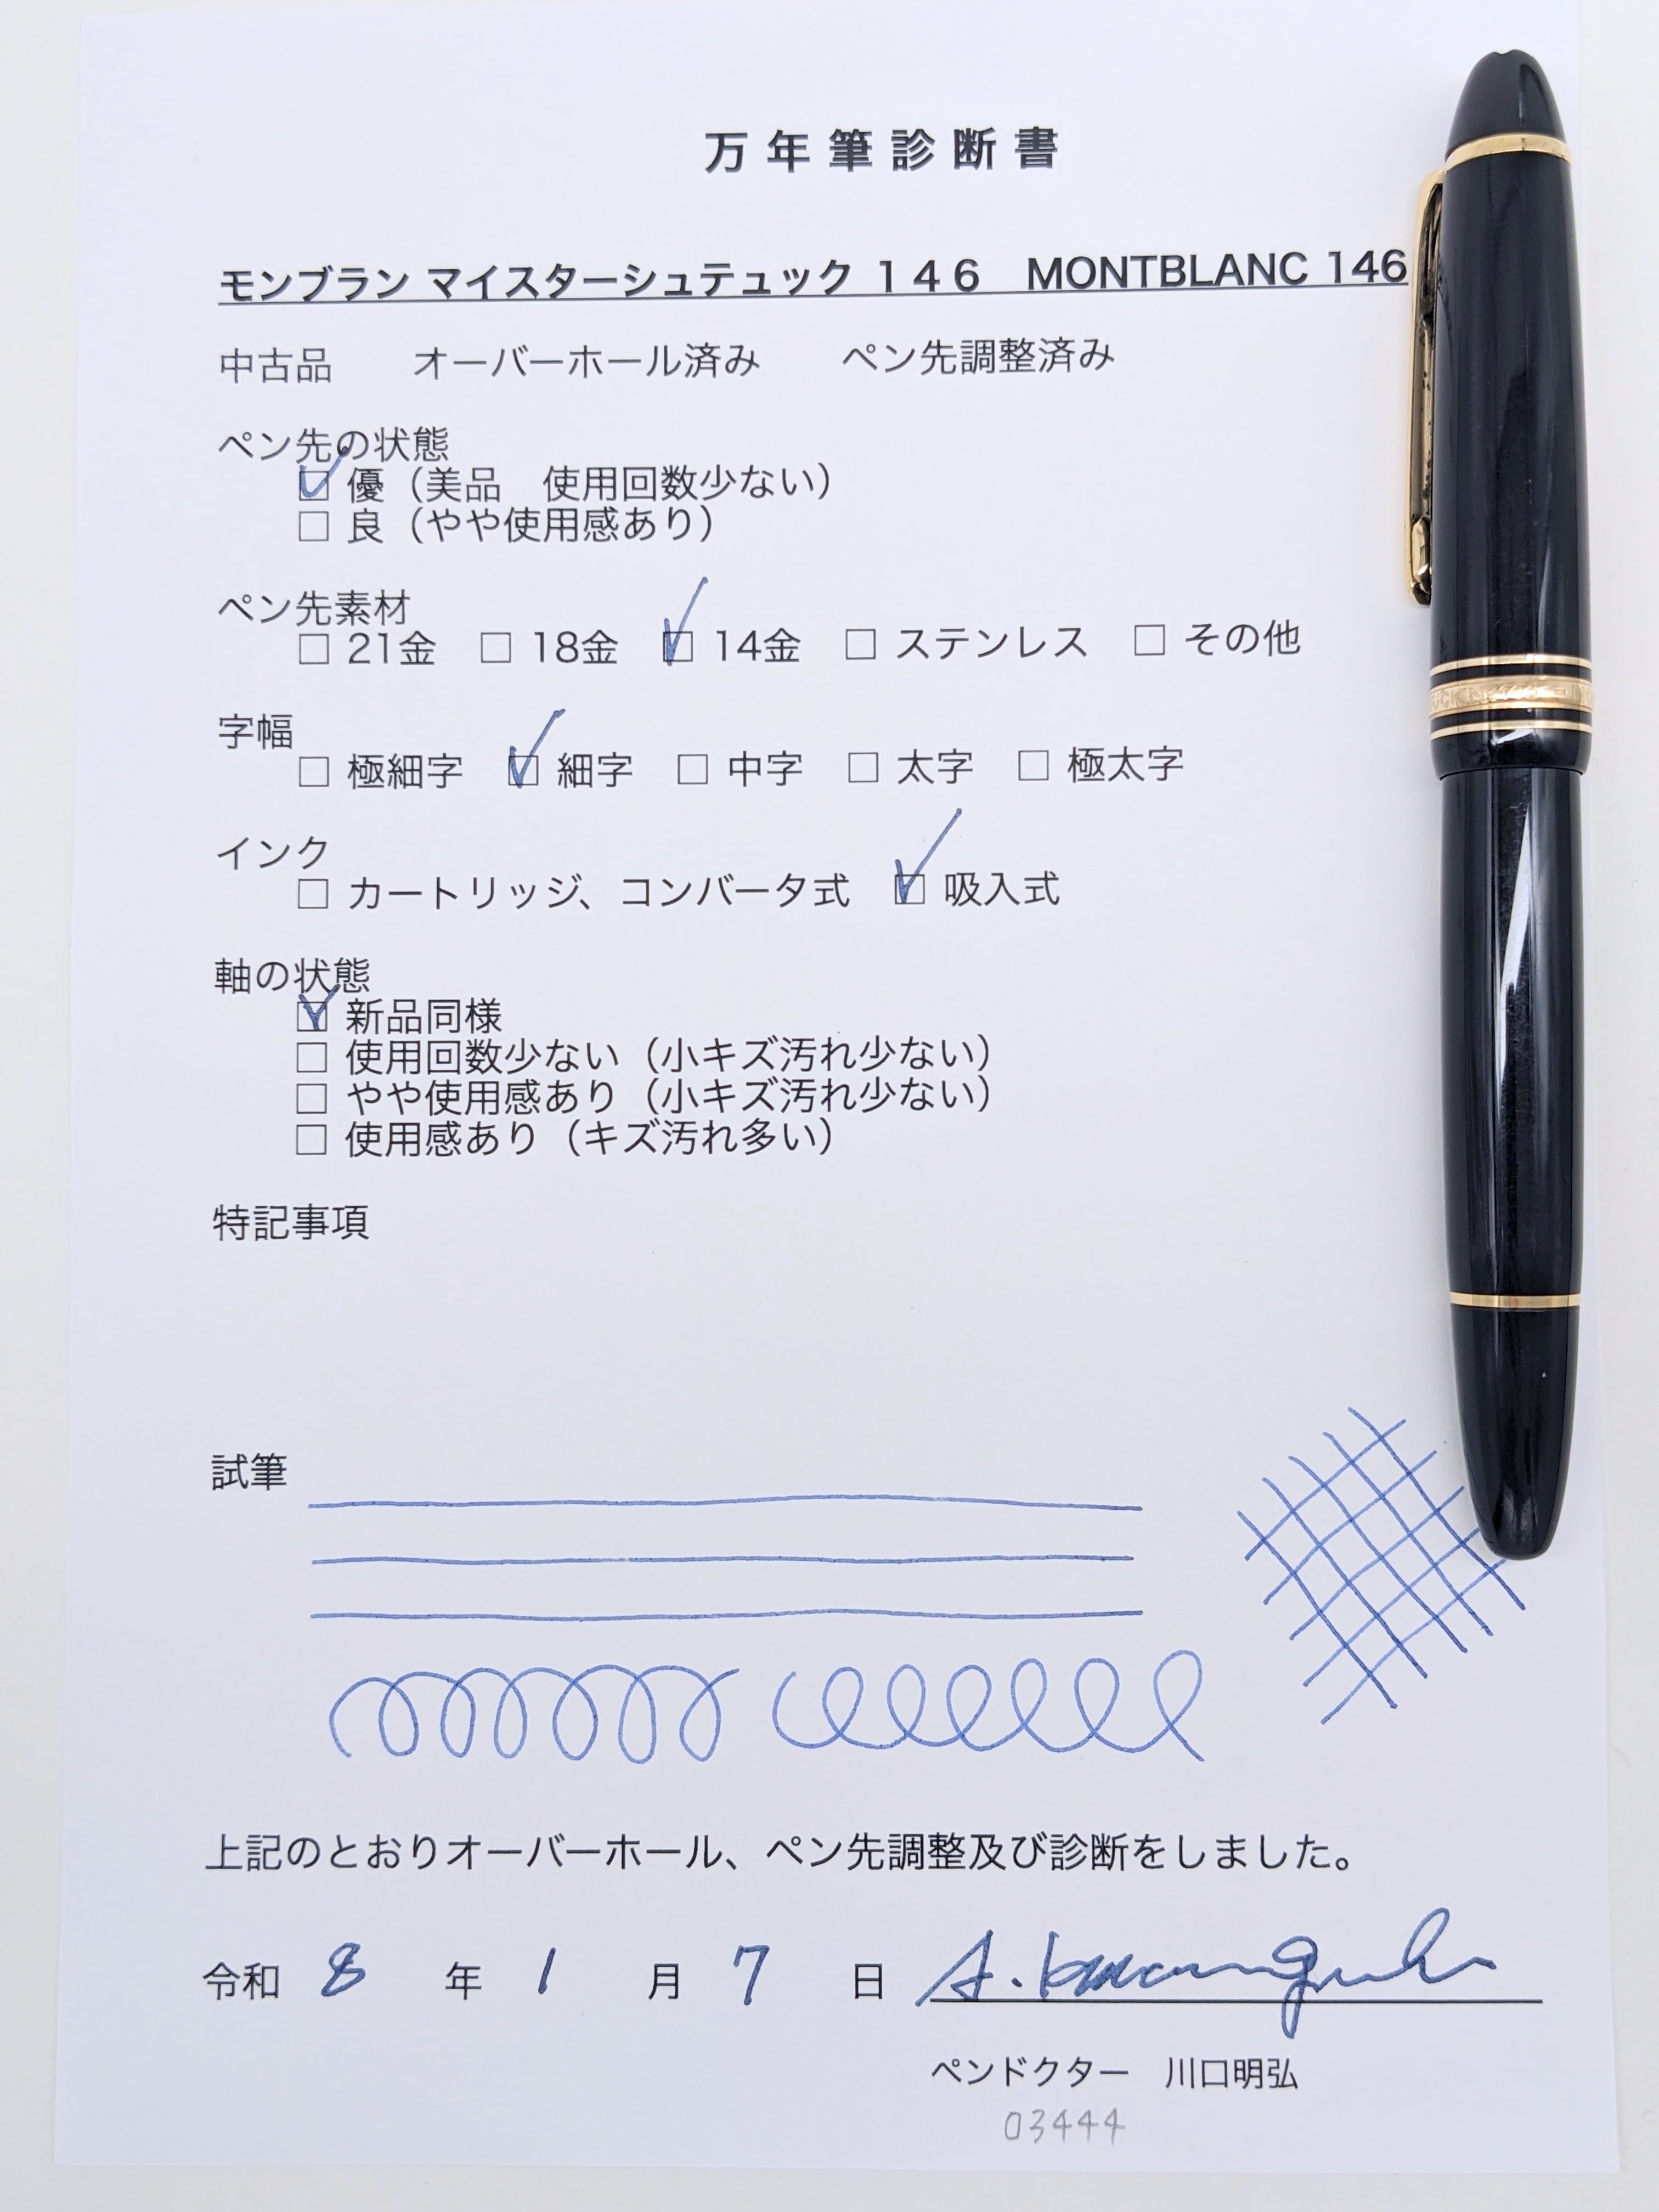 万年筆診断書
モンブラン マイスターシュテュック １４６　MONTBLANC 146
中古品　　オーバーホール済み　　ペン先調整済み
ペン先の状態
☑ 優（美品　使用回数少ない）
☐ 良（やや使用感あり）
ペン先素材
☐ 21金　☐ 18金　☑ 14金　☐ ステンレス　☐ その他
字幅
☐ 極細字　☑ 細字　☐ 中字　☐ 太字　☐ 極太字
インク
☐ カートリッジ、コンバータ式　☑ 吸入式
軸の状態
☑ 新品同様
☐ 使用回数少ない（小キズ汚れ少ない）
☐ やや使用感あり（小キズ汚れ少ない）
☐ 使用感あり（キズ汚れ多い）
特記事項
試筆
上記のとおりオーバーホール、ペン先調整及び診断をしました。
令和 8 年 1 月 7 日 A. Kawaguchi
ペンドクター　川口明弘
03444